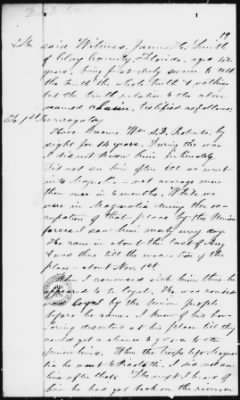 19
The said Witness, James C. Smith
of Clay County, Florida, aged
years, being first duly sworn to tell
the truth the whole truth & nothing
but the truth relative to the above
named claim, testified as follows:
To 1st Interrogatory
Have known Wm D. Roberts by
sight for 14 years. During the war
I did not know him intimately.
Did not see him often till we went
to — not more
than once in months. While we
were in Magnolia during the occu-
pation of that place by the Union
forces I saw him nearly every day.
He came in about the last of Aug
& was thus till the evacuation of the
place — about Nov. 1st.
When I conversed with him then he
appeared to be loyal. He was consid-
ered loyal by the Union people
before he came. I knew of his har-
boring deserters at his place till they
could get a chance to go over to the
Union lines. When the troops left Magno-
lia he went to Picolata. I did not see
him after that. Thought I heard of
him he had got back on the